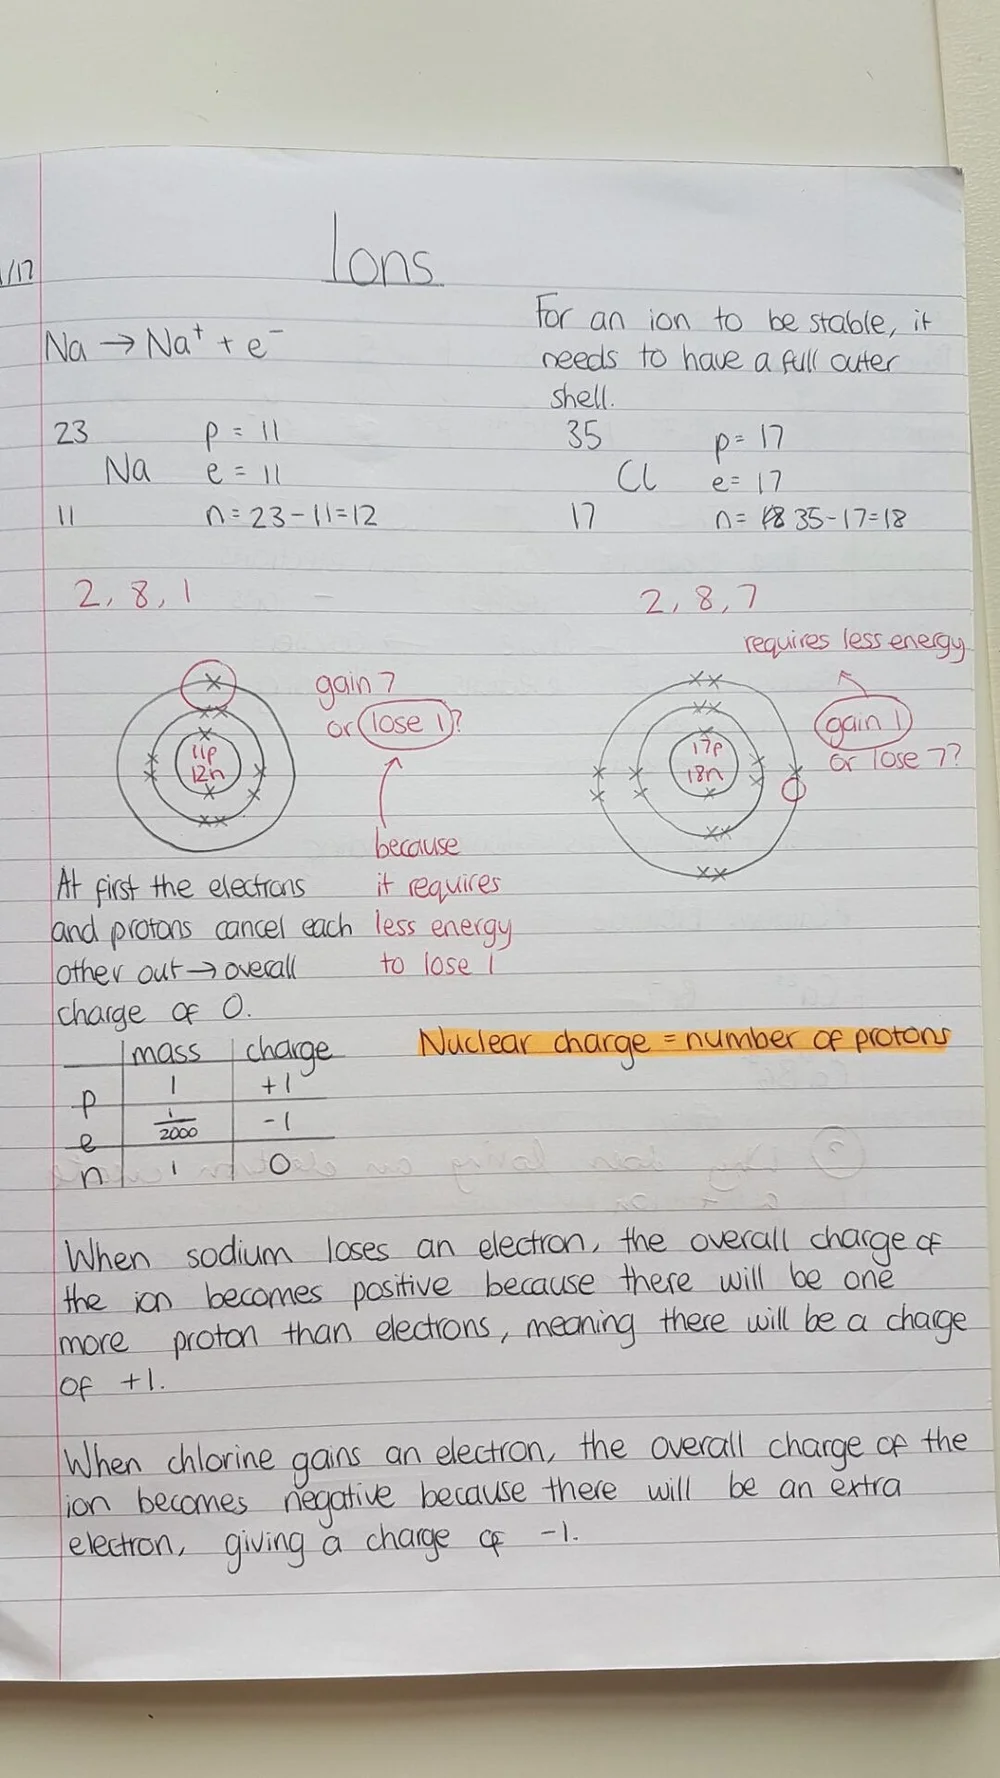 Ions
1/17
Na → Na⁺ + e⁻
23 p = 11
Na e = 11
11 n = 23 - 11 = 12
2, 8, 1
gain 7
or lose 1?
11p
12n
because
it requires
less energy
to lose 1
At first the electrons
and protons cancel each
other out → overall
charge of 0.
For an ion to be stable, it
needs to have a full outer
shell.
35 p = 17
Cl e = 17
17 n = 35 - 17 = 18
2, 8, 7
requires less energy
gain 1
or lose 7?
17p
18n
Nuclear charge = number of protons
mass charge
p 1 +1
e 1/2000 -1
n 1 0
When sodium loses an electron, the overall charge of
the ion becomes positive because there will be one
more proton than electrons, meaning there will be a charge
of +1.
When chlorine gains an electron, the overall charge of the
ion becomes negative because there will be an extra
electron, giving a charge of -1.